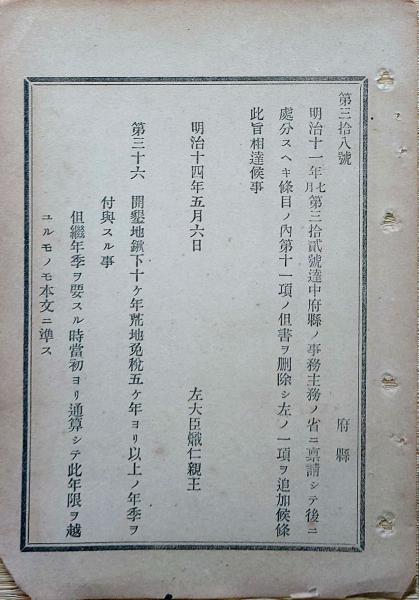 第三拾八號
府縣
明治十一年七月第三拾貳號達中府縣ノ事務主務ノ省ニ稟請シテ後ニ
處分スヘキ條目ノ內第十一項ノ但書ヲ刪除シ左ノ一項ヲ追加候條
此旨相達候事
明治十四年五月六日
左大臣熾仁親王
第三十六 開墾地鍬下十ケ年荒地免稅五ケ年ヨリ以上ノ年季ヲ
付與スル事
但繼年季ヲ要スル時當初ヨリ通算シテ此年限ヲ越
ユルモノモ本文ニ準ス